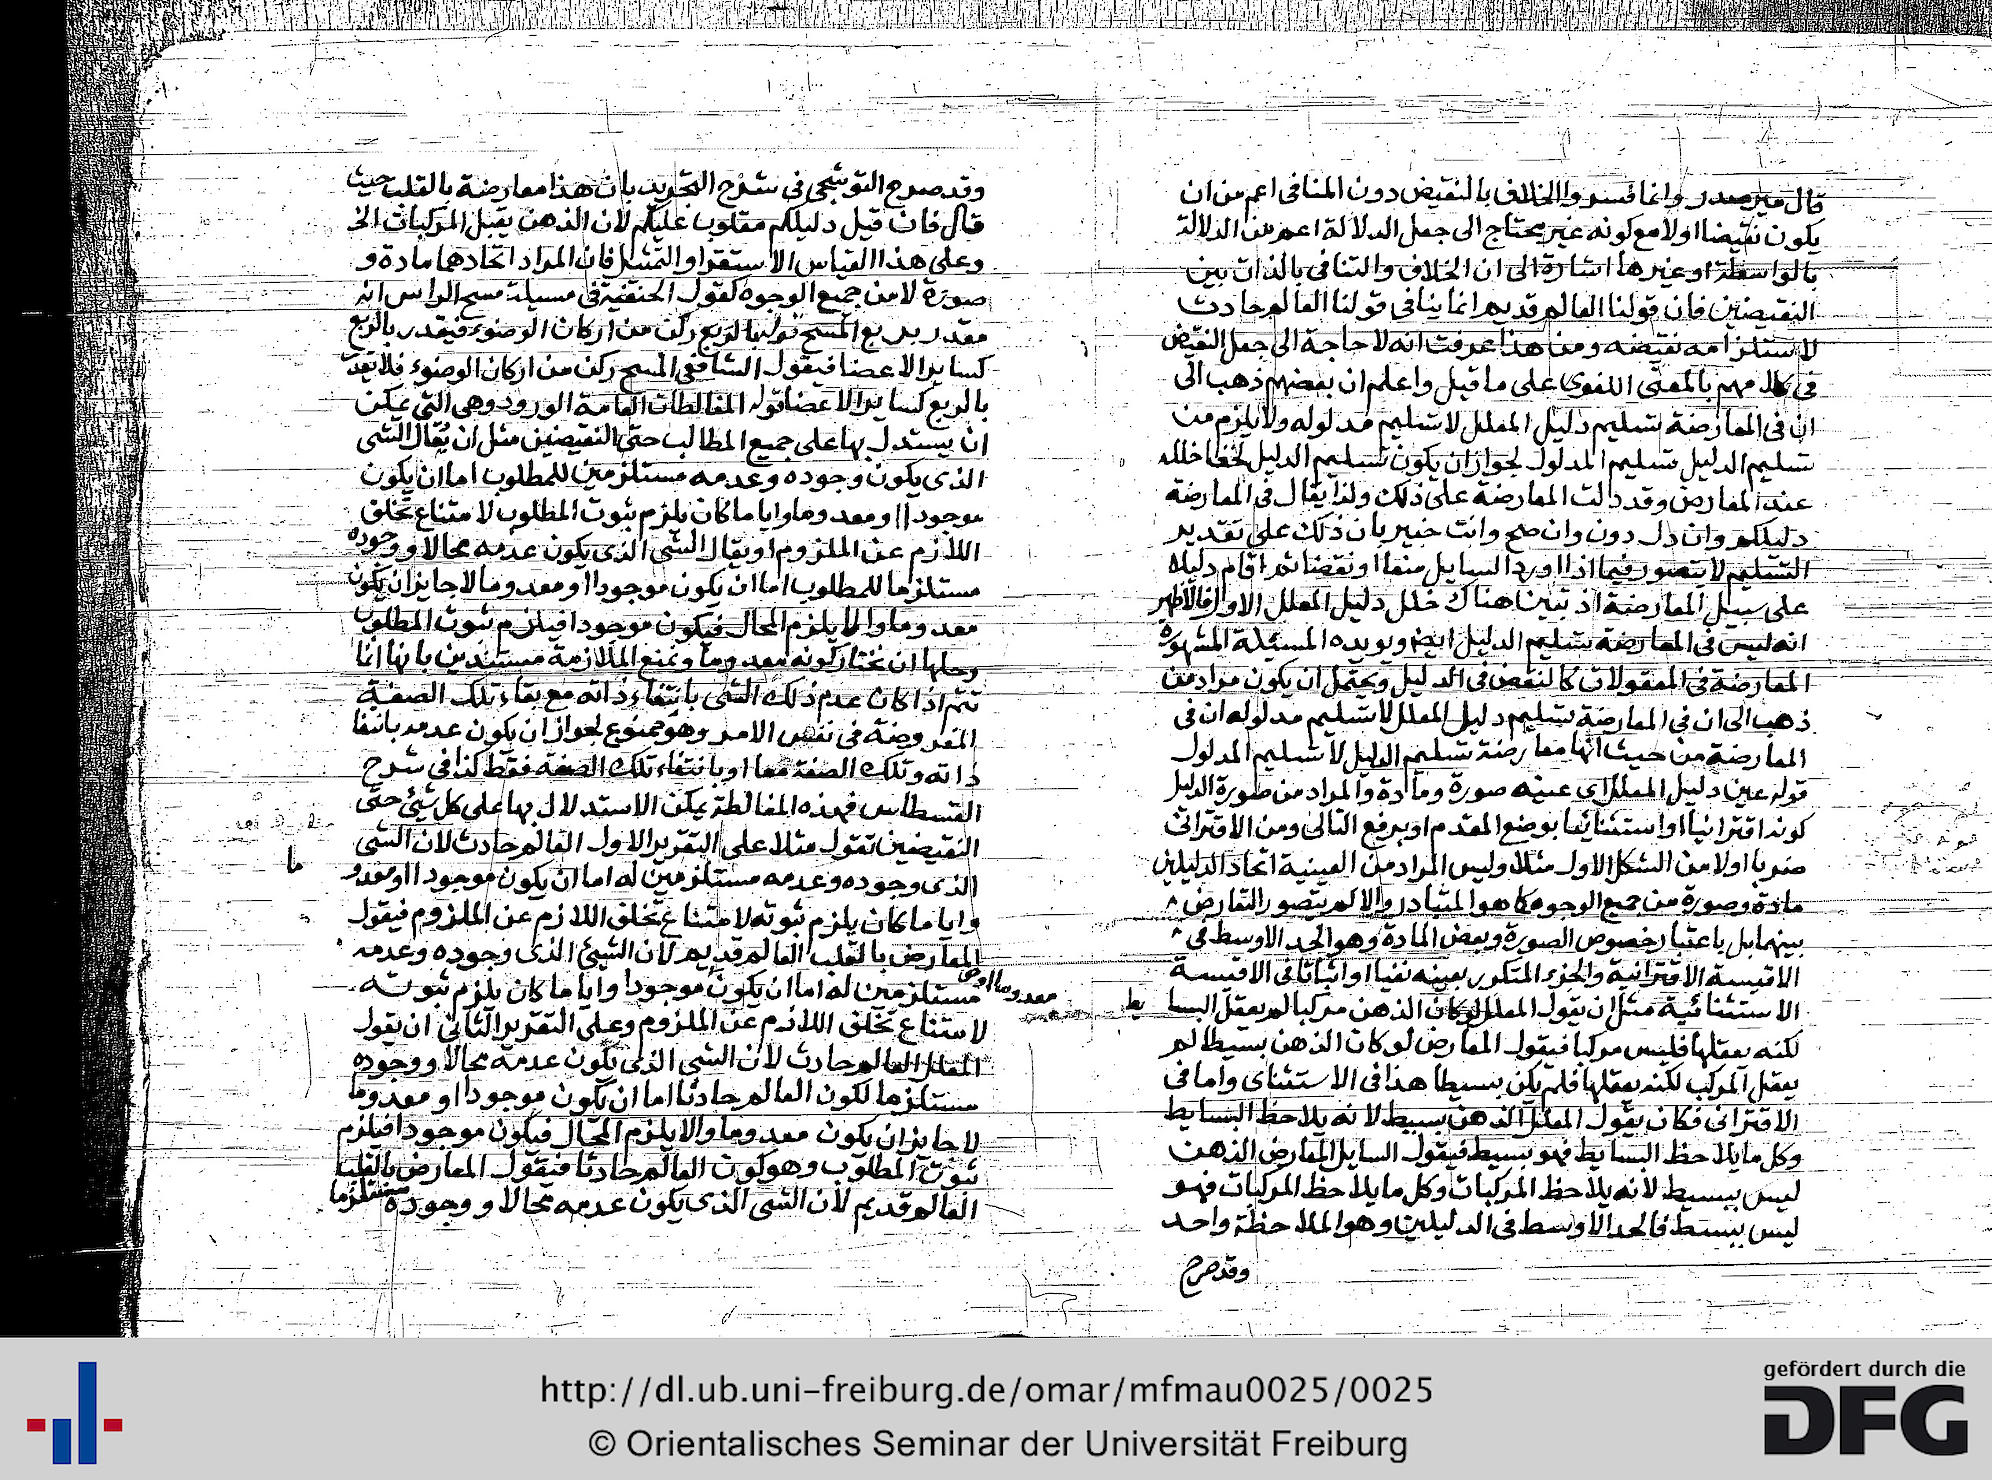 قال مير صدر وانما فسروا الخلاف بالنقيض دون المنافى اعم من ان
يكون نقيضا اولا مع كونه غير محتاج الى جعل الدلالة اعم من الدلالة
بالواسطة او غيرها اشارة الى ان الخلاف والتنافى بالذات بين
النقيضين فان قولنا العالم قديم انما ينافى قولنا العالم حادث
لاستلزامه نقيضه ومن هذا عرفت انه لا حاجة الى حمل النقيض
فى كلامهم بالمعنى اللغوى على ما قيل واعلم ان بعضهم ذهب الى
ان فى المعارضة تسليم دليل المعلل لا تسليم مدلوله ولا يلزم من
تسليم الدليل تسليم المدلول لجواز ان يكون تسليم الدليل لخفا خلله
عند المعارض وقد دلت المعارضة على ذلك ولذا يقال فى المعارضة
دليلكم وان دل دون وان صح وانت خبير بان ذلك على تقدير
التسليم لا يتصور فيما اذا اورد السايل منعا او نقضا ثم اقام دليله
على سبيل المعارضة اذ تبين هناك خلل دليل المعلل الاول فالاظهر
انه ليس فى المعارضة تسليم الدليل ايضا ويويده المسئلة المشهورة
المعارضة فى المعقولات كالنقض فى الدليل ويحتمل ان يكون مراد من
ذهب الى ان فى المعارضة تسليم دليل المعلل لا تسليم مدلوله ان فى
المعارضة من حيث انها معارضة تسليم الدليل لا تسليم المدلول
قوله عين دليل المعلل اى عينه صورة ومادة والمراد من صورة الدليل
كونه اقترانيا او استثنائيا بوضع المقدم او برفع التالى ومن الاقترانى
ضربا اولا من الشكل الاول مثلا وليس المراد من العينية اتحاد الدليلين
مادة وصورة من جميع الوجوه كما هو المتبادر والا لم يتصور التعارض
بينهما بل باعتبار خصوص الصورة وبعض المادة وهو الحد الاوسط فى
الاقيسة الاقترانية والجزء المتكرر بعينه نفيا او اثباتا فى الاقيسة
الاستثنائية مثل ان يقول المعلل لو كان الذهن مركبا لم يعقل البسايط
لكنه يعقلها فليس مركبا فيقول المعارض لو كان الذهن بسيطا لم
يعقل المركب لكنه يعقلها فلم يكن بسيطا هذا فى الاستثناى واما فى
الاقترانى فكان يقول المعلل الذهن بسيط لانه يلاحظ البسايط
وكل ما يلاحظ البسايط فهو بسيط فيقول السايل المعارض الذهن
ليس ببسيط لانه يلاحظ المركبات وكل ما يلاحظ المركبات فهو
ليس ببسيط فالحد الاوسط فى الدليلين وهو الملاحظة واحد
وقد صرح
وقد صرح القوشجى فى شرح التجريد بان هذا معارضة بالقلب حيث
قال فان قيل دليلكم مقلوب عليكم لان الذهن يقبل المركبات الخ
وعلى هذا القياس الاستقرا والتمثيل فان المراد اتحادهما مادة و
صورة لا من جميع الوجوه كقول الحنفية فى مسيلة مسح الراس انه
مقدر بربع المسح ركن من اركان الوضوء فيقدر بالربع
كساير الاعضا فيقول الشافعى المسح ركن من اركان الوضوء فلا يقدر
بالربع كساير الاعضا قوله المغالطات العامة الورود وهى التى يمكن
ان يستدل بها على جميع المطالب حتى النقيضين مثل ان يقال الشى
الذى يكون وجوده وعدمه مستلزمين للمطلوب اما ان يكون
موجودا او معدوما وايا ما كان يلزم ثبوت المطلوب لامتناع تخلق
اللازم عن الملزوم او يقال الشى الذى يكون عدمه محالا ووجوده
مستلزما للمطلوب اما ان يكون موجودا او معدوما لا جايز ان يكون
معدوما والا يلزم المحال فيكون موجودا فيلزم ثبوت المطلوب
وحلها ان نختار كونه معدوما ونمنع الملازمة مستندين بانها انما
تتم اذا كان عدم ذلك الشى بانتفاء ذاته مع بقاء تلك الصفة
المفروضة فى نفس الامر وهو ممنوع لجواز ان يكون عدمه بانتفا
ذاته وتلك الصفة معا او بانتفاء تلك الصفة فقط كذا فى شرح
القسطاس فهذه المغالطة يمكن الاستدلال بها على كل شيئ حتى
النقيضين تقول مثلا على التقرير الاول العالم حادث لان الشى
الذى وجوده وعدمه مستلزمين له اما ان يكون موجودا او معدو
ما
وايا ما كان يلزم ثبوته لامتناع تخلق اللازم عن الملزوم فيقول
المعارض بالقلب العالم قديم لان الشيئ الذى وجوده وعدمه
مستلزمين له اما ان يكون موجودا وايا ما كان يلزم ثبوته
لامتناع تخلق اللازم عن الملزوم وعلى التقرير الثانى ان يقول
المعلل العالم حادث لان الشى الذى يكون عدمه محالا ووجوده
مستلزما لكون العالم حادثا اما ان يكون موجودا او معدوما
لا جايز ان يكون معدوما والا يلزم المحال فيكون موجودا فيلزم
ثبوت المطلوب وهو كون العالم حادثا فيقول المعارض بالقلب
العالم قديم لان الشى الذى يكون عدمه محالا ووجوده مستلزما
http://dl.ub.uni-freiburg.de/omar/mfmau0025/0025
© Orientalisches Seminar der Universität Freiburg
gefördert durch die
DFG